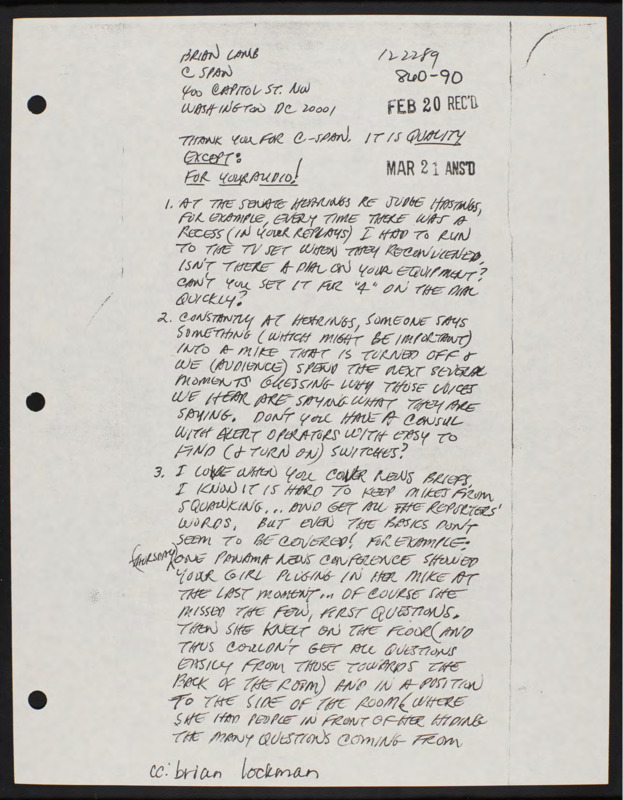 BRIAN LAMB 122289
C SPAN 860-90
400 CAPITOL ST. NW
WASHINGTON DC 20001 FEB 20 REC'D
THANK YOU FOR C-SPAN. IT IS QUALITY
EXCEPT: MAR 21 ANS'D
FOR YOUR AUDIO!
1. AT THE SENATE HEARINGS RE JUDGE HASTINGS,
FOR EXAMPLE, EVERY TIME THERE WAS A
RECESS (IN YOUR REPLAYS) I HAD TO RUN
TO THE TV SET WHEN THEY RECONVIENED,
ISN'T THERE A DIAL ON YOUR EQUIPMENT?
CAN'T YOU SET IT FOR "4" ON THE DIAL
QUICKLY?
2. CONSTANTLY AT HEARINGS, SOMEONE SAYS
SOMETHING (WHICH MIGHT BE IMPORTANT)
INTO A MIKE THAT IS TURNED OFF &
WE (AUDIENCE) SPEND THE NEXT SEVERAL
MOMENTS GUESSING WHY THOSE VOICES
WE HEAR ARE SAYING WHAT THEY ARE
SAYING. DON'T YOU HAVE A CONSUL
WITH ALERT OPERATORS WITH EASY TO
FIND (& TURN ON) SWITCHES?
3. I LOVE WHEN YOU COVER NEWS BRIEFS,
I KNOW IT IS HARD TO KEEP MIKES FROM
SQUAWKING... AND GET ALL THE REPORTERS'
WORDS. BUT EVEN THE BASICS DON'T
SEEM TO BE COVERED! FOR EXAMPLE:
(THURSDAY) ONE PANAMA NEWS CONFERENCE SHOWED
YOUR GIRL PLUGING IN HER MIKE AT
THE LAST MOMENT... OF COURSE SHE
MISSED THE FEW, FIRST QUESTIONS.
THEN SHE KNELT ON THE FLOOR (AND
THUS COULDN'T GET ALL QUESTIONS
EASILY FROM THOSE TOWARDS THE
BACK OF THE ROOM) AND IN A POSITION
TO THE SIDE OF THE ROOM (WHERE
SHE HAD PEOPLE IN FRONT OF HER HIDING
THE MANY QUESTIONS COMING FROM
cc: brian lockman